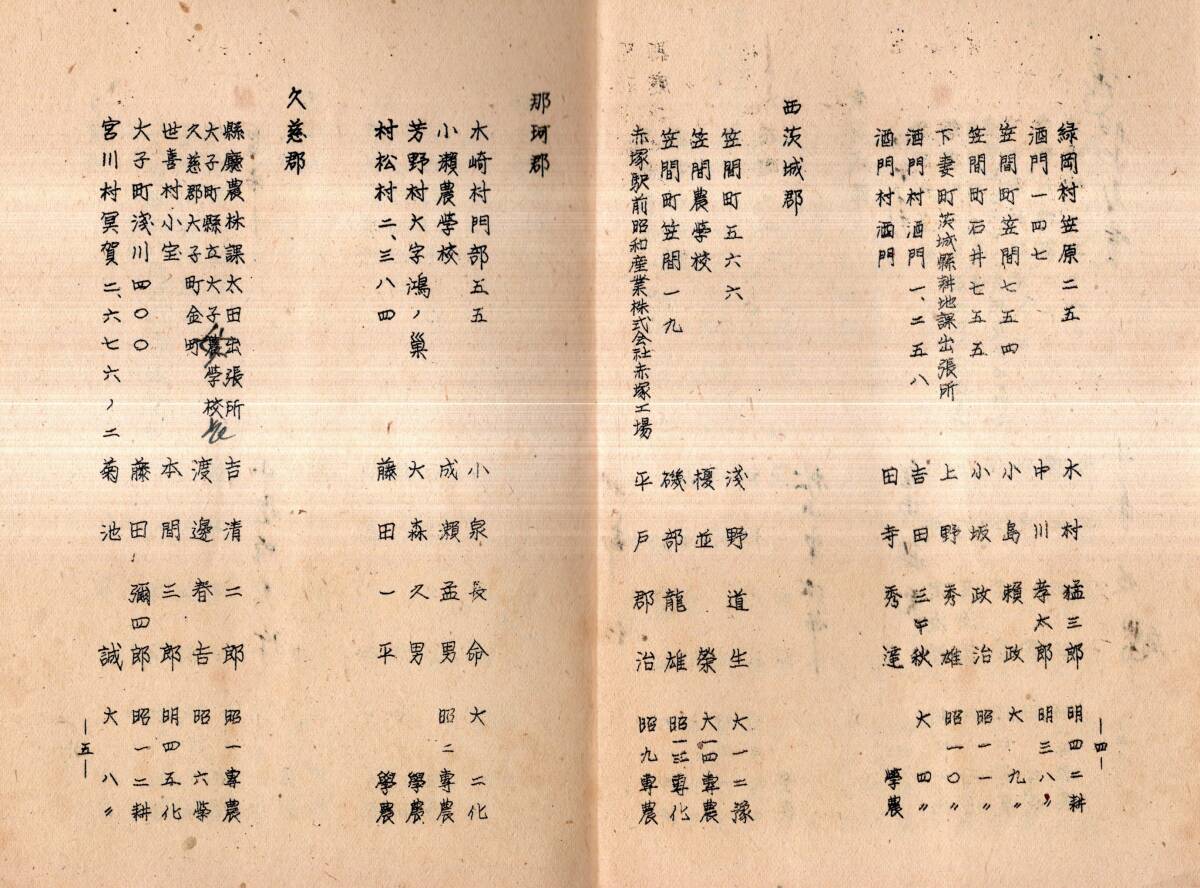 緑岡村笠原二五 水村猛三郎 明四二耕
酒門一四七 中川孝太郎 明三八〃
笠間町笠間七五四 小島頼政 大九〃
笠間町石井七五五 小坂政治 昭一一〃
下妻町茨城縣耕地課出張所 上野秀雄 昭一〇〃
酒門村酒門一、二五八 吉田三千秋 大四〃
酒門村酒門 田寺秀達 學農
西茨城郡
笠間町五六六 淺野道生 大一二豫
笠間農學校 榎並榮 大一四專農
笠間町笠間一九 磯部龍雄 昭一三專化
赤塚駅前昭和産業株式会社赤塚工場 平戸郡治 昭九專農
―四―
那珂郡
木崎村門部五五 小泉長命 大二化
小瀬農學校 成瀬孟男 昭二專農
芳野村大字鴻ノ巣 大森久男 學農
村松村二、三八四 藤田一平 學農
久慈郡
縣廳農林課太田出張所 吉清二郎 昭一專農
大子町縣立大子農學校
久慈郡大子町金町 渡邊春吉 昭六學
世喜村小宝 本間三郎 明四五化
大子町淺川四〇〇 藤田彌四郎 昭一二耕
宮川村冥賀二、六七六ノ二 菊池誠 大八〃
―五―